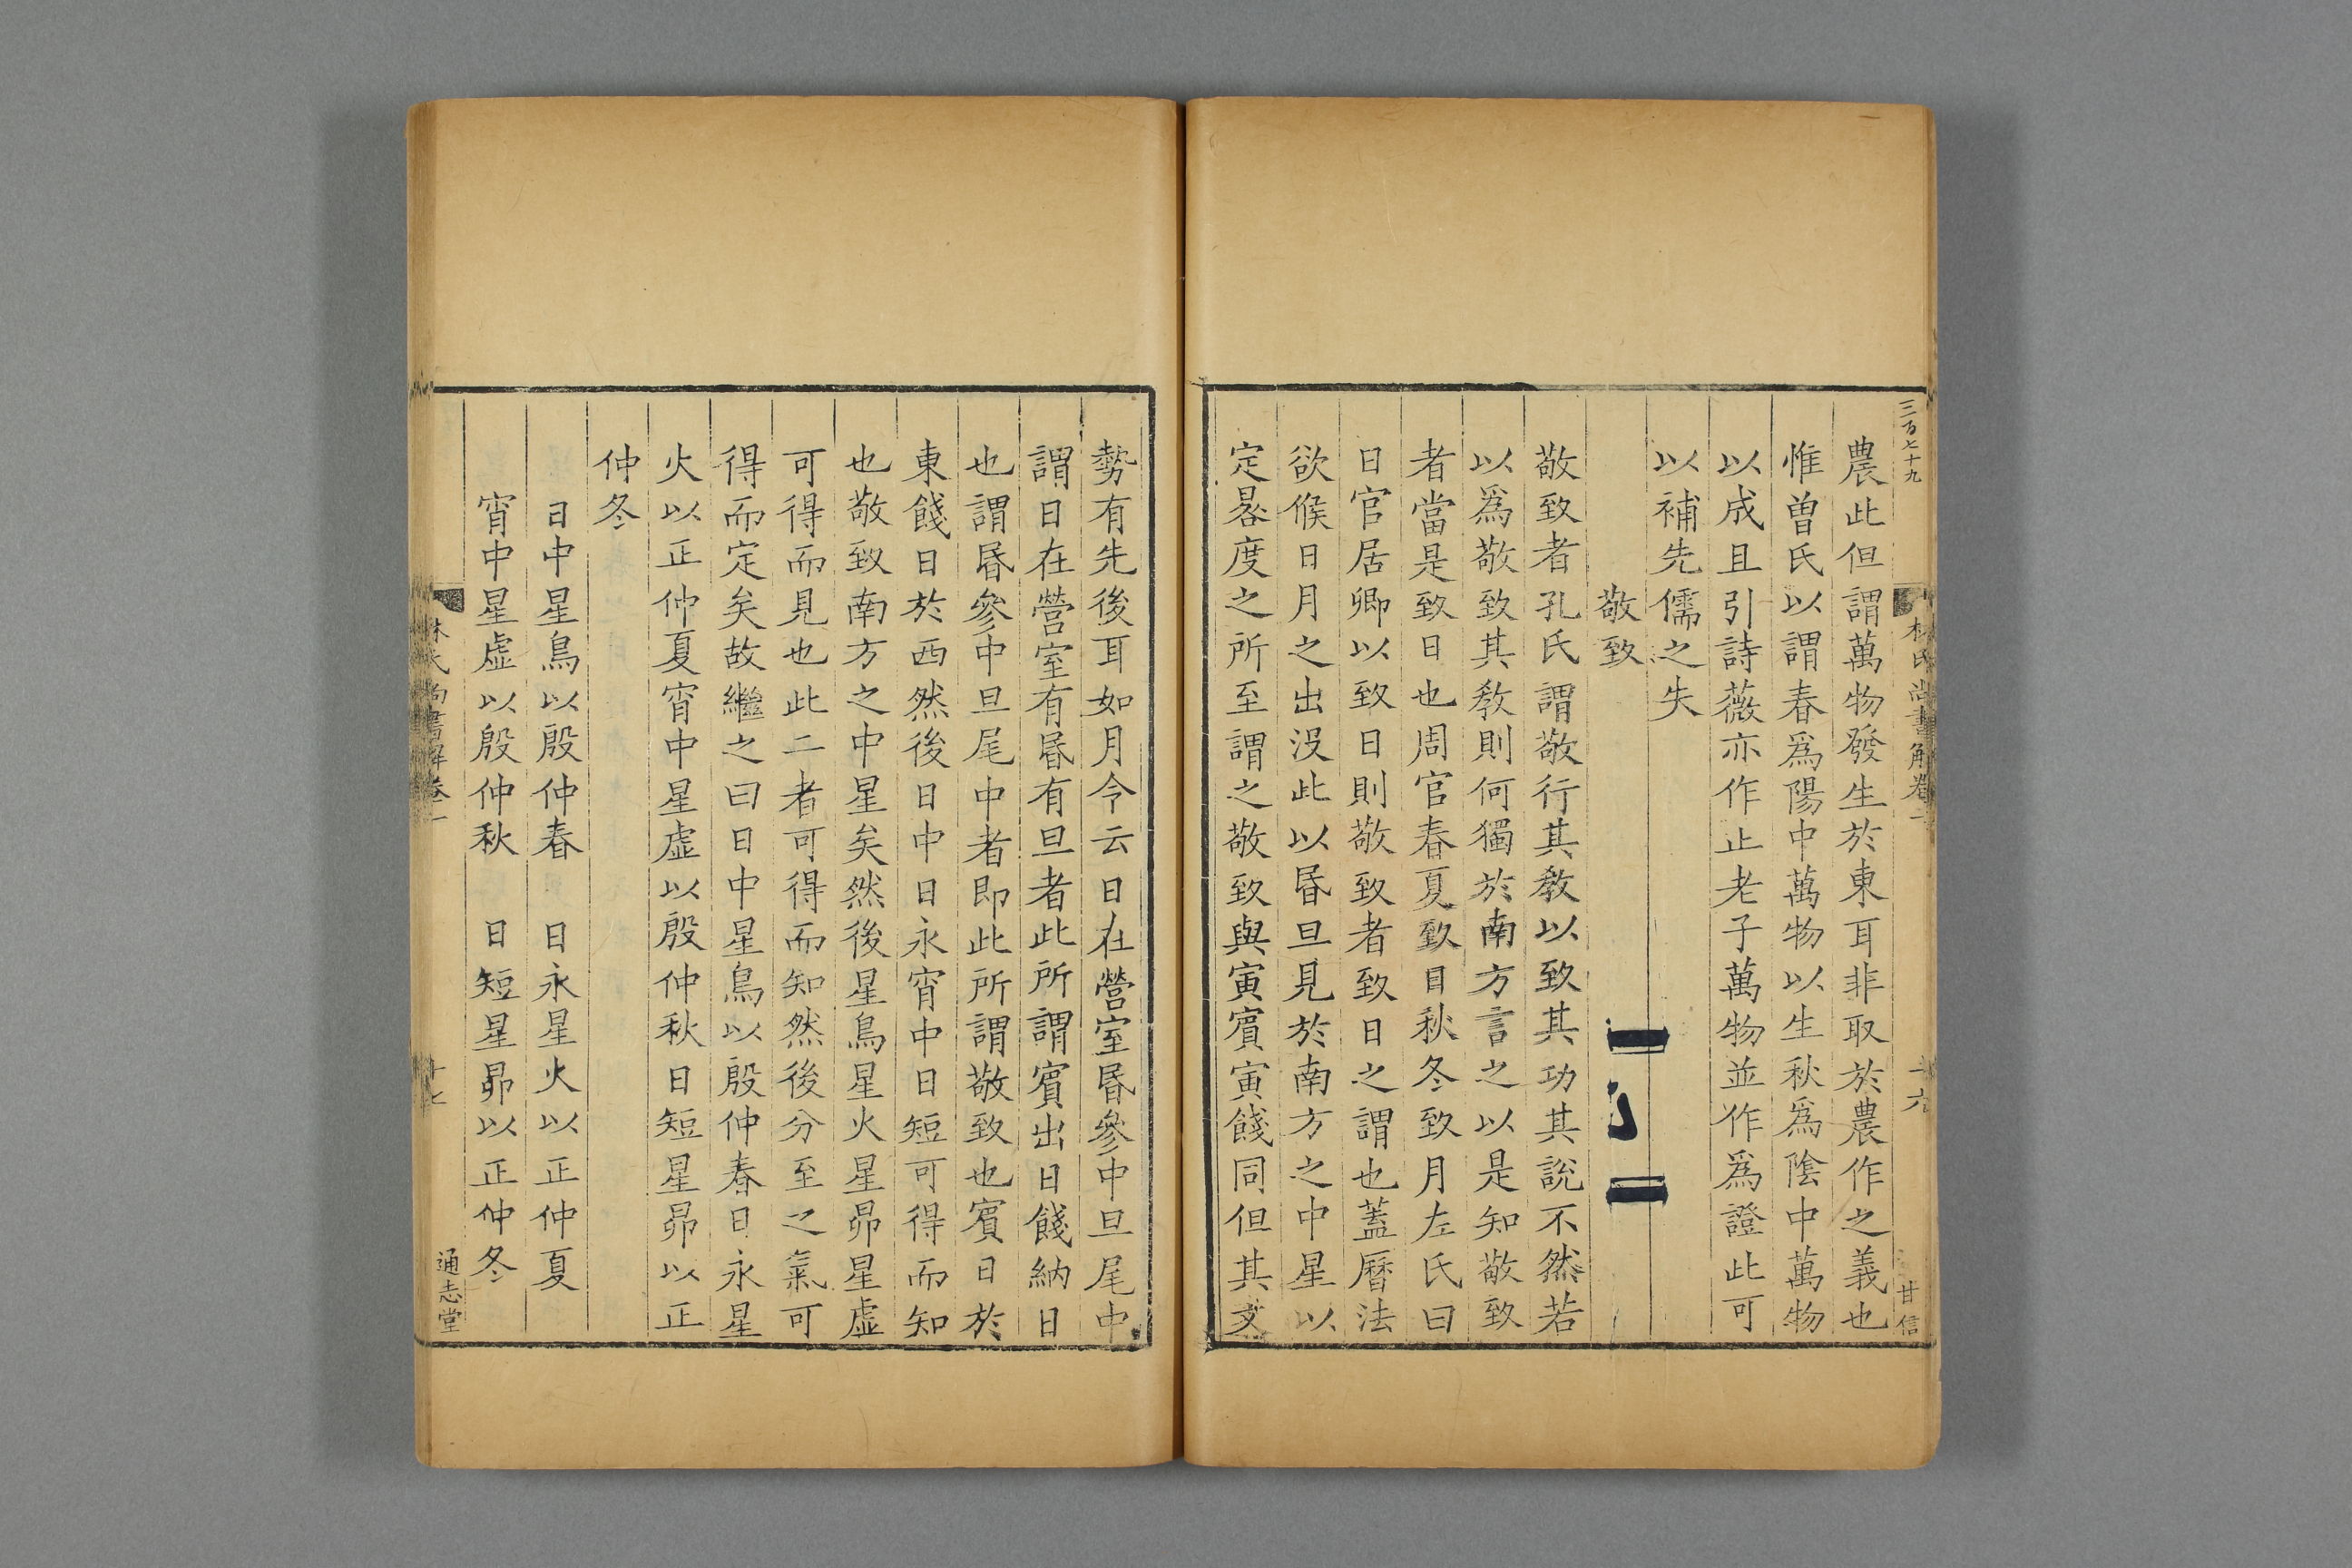 三百七十九
林氏尚書解卷一
十六
甘信
農此但謂萬物發生於東耳非取於農作之義也
惟曾氏以謂春爲陽中萬物以生秋爲陰中萬物
以成且引詩薇亦作止老子萬物並作爲證此可
以補先儒之失
敬致
敬致者孔氏謂敬行其敎以致其功其說不然若
以爲敬致其敎則何獨於南方言之以是知敬致
者當是致日也周官春夏致日秋冬致月左氏曰
日官居卿以致日則敬致者致日之謂也蓋曆法
欲候日月之出沒此以昬旦見於南方之中星以
定晷度之所至謂之敬致與寅賓寅餞同但其文
勢有先後耳如月令云日在營室昬參中旦尾中
謂日在營室有昬有旦者此所謂賓出日餞納日
也謂昬參中旦尾中者即此所謂敬致也賓日於
東餞日於西然後日中日永宵中日短可得而知
也敬致南方之中星矣然後星鳥星火星昴星虛
可得而見也此二者可得而知然後分至之氣可
得而定矣故繼之曰日中星鳥以殷仲春日永星
火以正仲夏宵中星虛以殷仲秋日短星昴以正
仲冬
日中星鳥以殷仲春　日永星火以正仲夏
宵中星虛以殷仲秋　日短星昴以正仲冬
林氏尚書解卷一
十七
通志堂